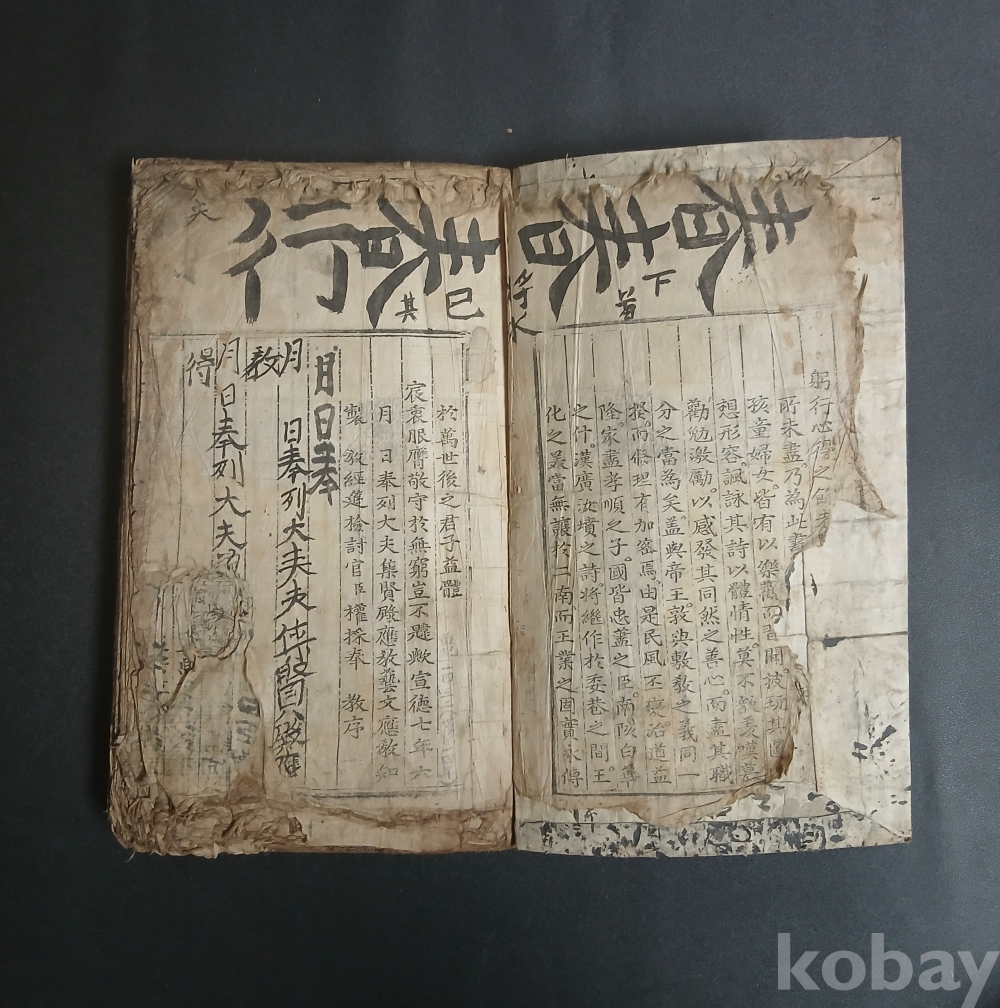 春春
下
躬行心得之餘
所未盡乃為此書
孩童婦女皆有以樂觀而習聞披玩其圖
想形容諷詠其詩以體情性莫不歆羨嘆慕
勸勉激勵以感發其同然之善心而盡其職
分之當為矣盖與帝王敦典敷教之義同一
揆而條理有加密焉由是民風丕變治道益
隆家盡孝順之子國皆忠藎之臣南陔白華
之什漢廣汝墳之詩將繼作於委巷之間王
化之美當無讓於二南而王業之固實永傳
巳
其
於萬世後之君子益體
宸衷服膺敬守於無窮豈不韙歟宣德七年六
月 日奉列大夫集賢殿應教藝文應教知
製 教經筵檢討官臣權採奉 教序
月日奉
月日奉列大夫夫
教
月日奉列大夫
得
kobay